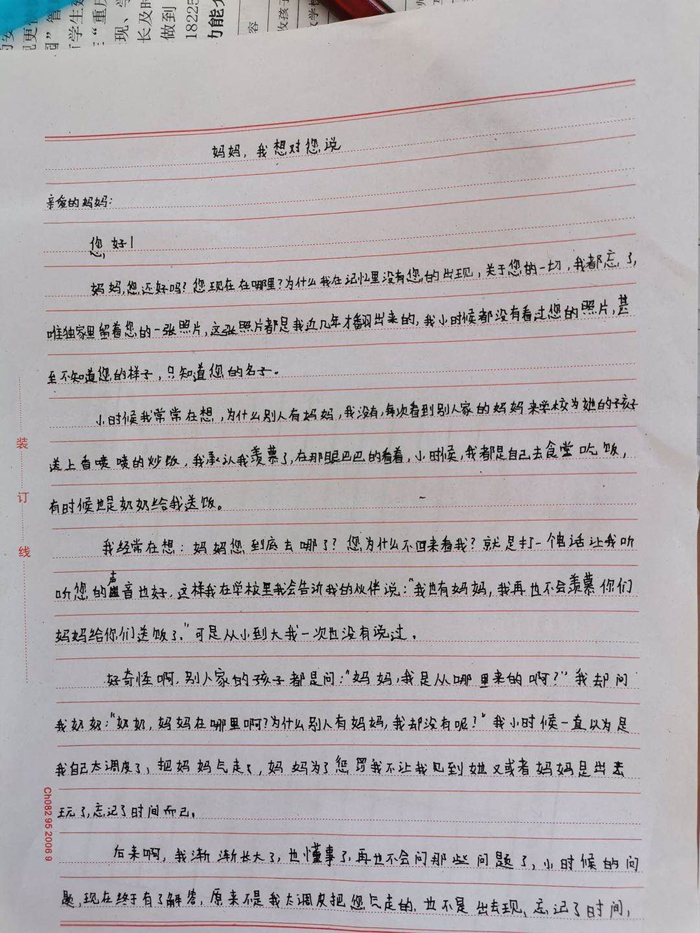 妈妈，我想对您说
亲爱的妈妈：
您好！
妈妈，您还好吗？您现在在哪里？为什么我在记忆里没有您的出现，关于您的一切，我都忘了，
唯独家里留着您的一张照片，这张照片都是我近几年才翻出来的，我小时候都没有看过您的照片，甚
至不知道您的样子，只知道您的名子。
小时候我常常在想，为什么别人有妈妈，我没有，每次看到别人家的妈妈来学校为她的子孩子
送上香喷喷的炒饭，我承认我羡慕了，在那眼巴巴的看着，小时候，我都是自己去食堂吃饭，
有时候也是奶奶给我送饭。
我经常在想：妈妈您到底去哪了？您为什么不回来看我？就是打一个电话让我听
听您的声音也好，这样我在学校里我会告诉我的伙伴说："我也有妈妈，我再也不会羡慕你们
妈妈给你们送饭了。"可是从小到大我一次也没有说过。
好奇怪啊，别人家的孩子都是问："妈妈，我是从哪里来的啊？"我却问
我奶奶："奶奶，妈妈在哪里啊？为什么别人有妈妈，我却没有呢？"我小时候一直以为是
我自己太调皮了，把妈妈气走了，妈妈为了惩罚我不让我见到她又或者妈妈是出去
玩了，忘记了时间而已。
后来啊，我渐渐长大了，也懂事了，再也不会问那些问题了，小时候的问
题，现在终于有了解答，原来不是我太调皮把您气走的，也不是出去现、忘记了时间，
装
订
线
Ch082 95 2006 9